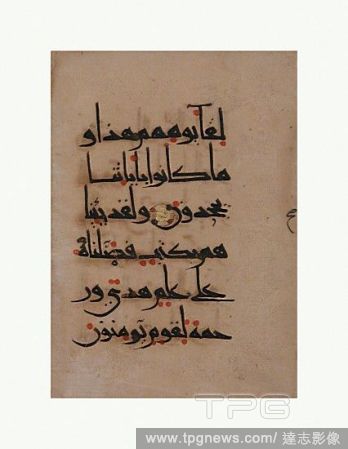 لقآ يومهم هذا و
ما كانوا باياتنا
يجحدون ولقد جئنا
هم بكتب فصلناه
على علم هدى ور
حمة لقوم يومنون
TPG
www.tpgnews.com/ 達志影像